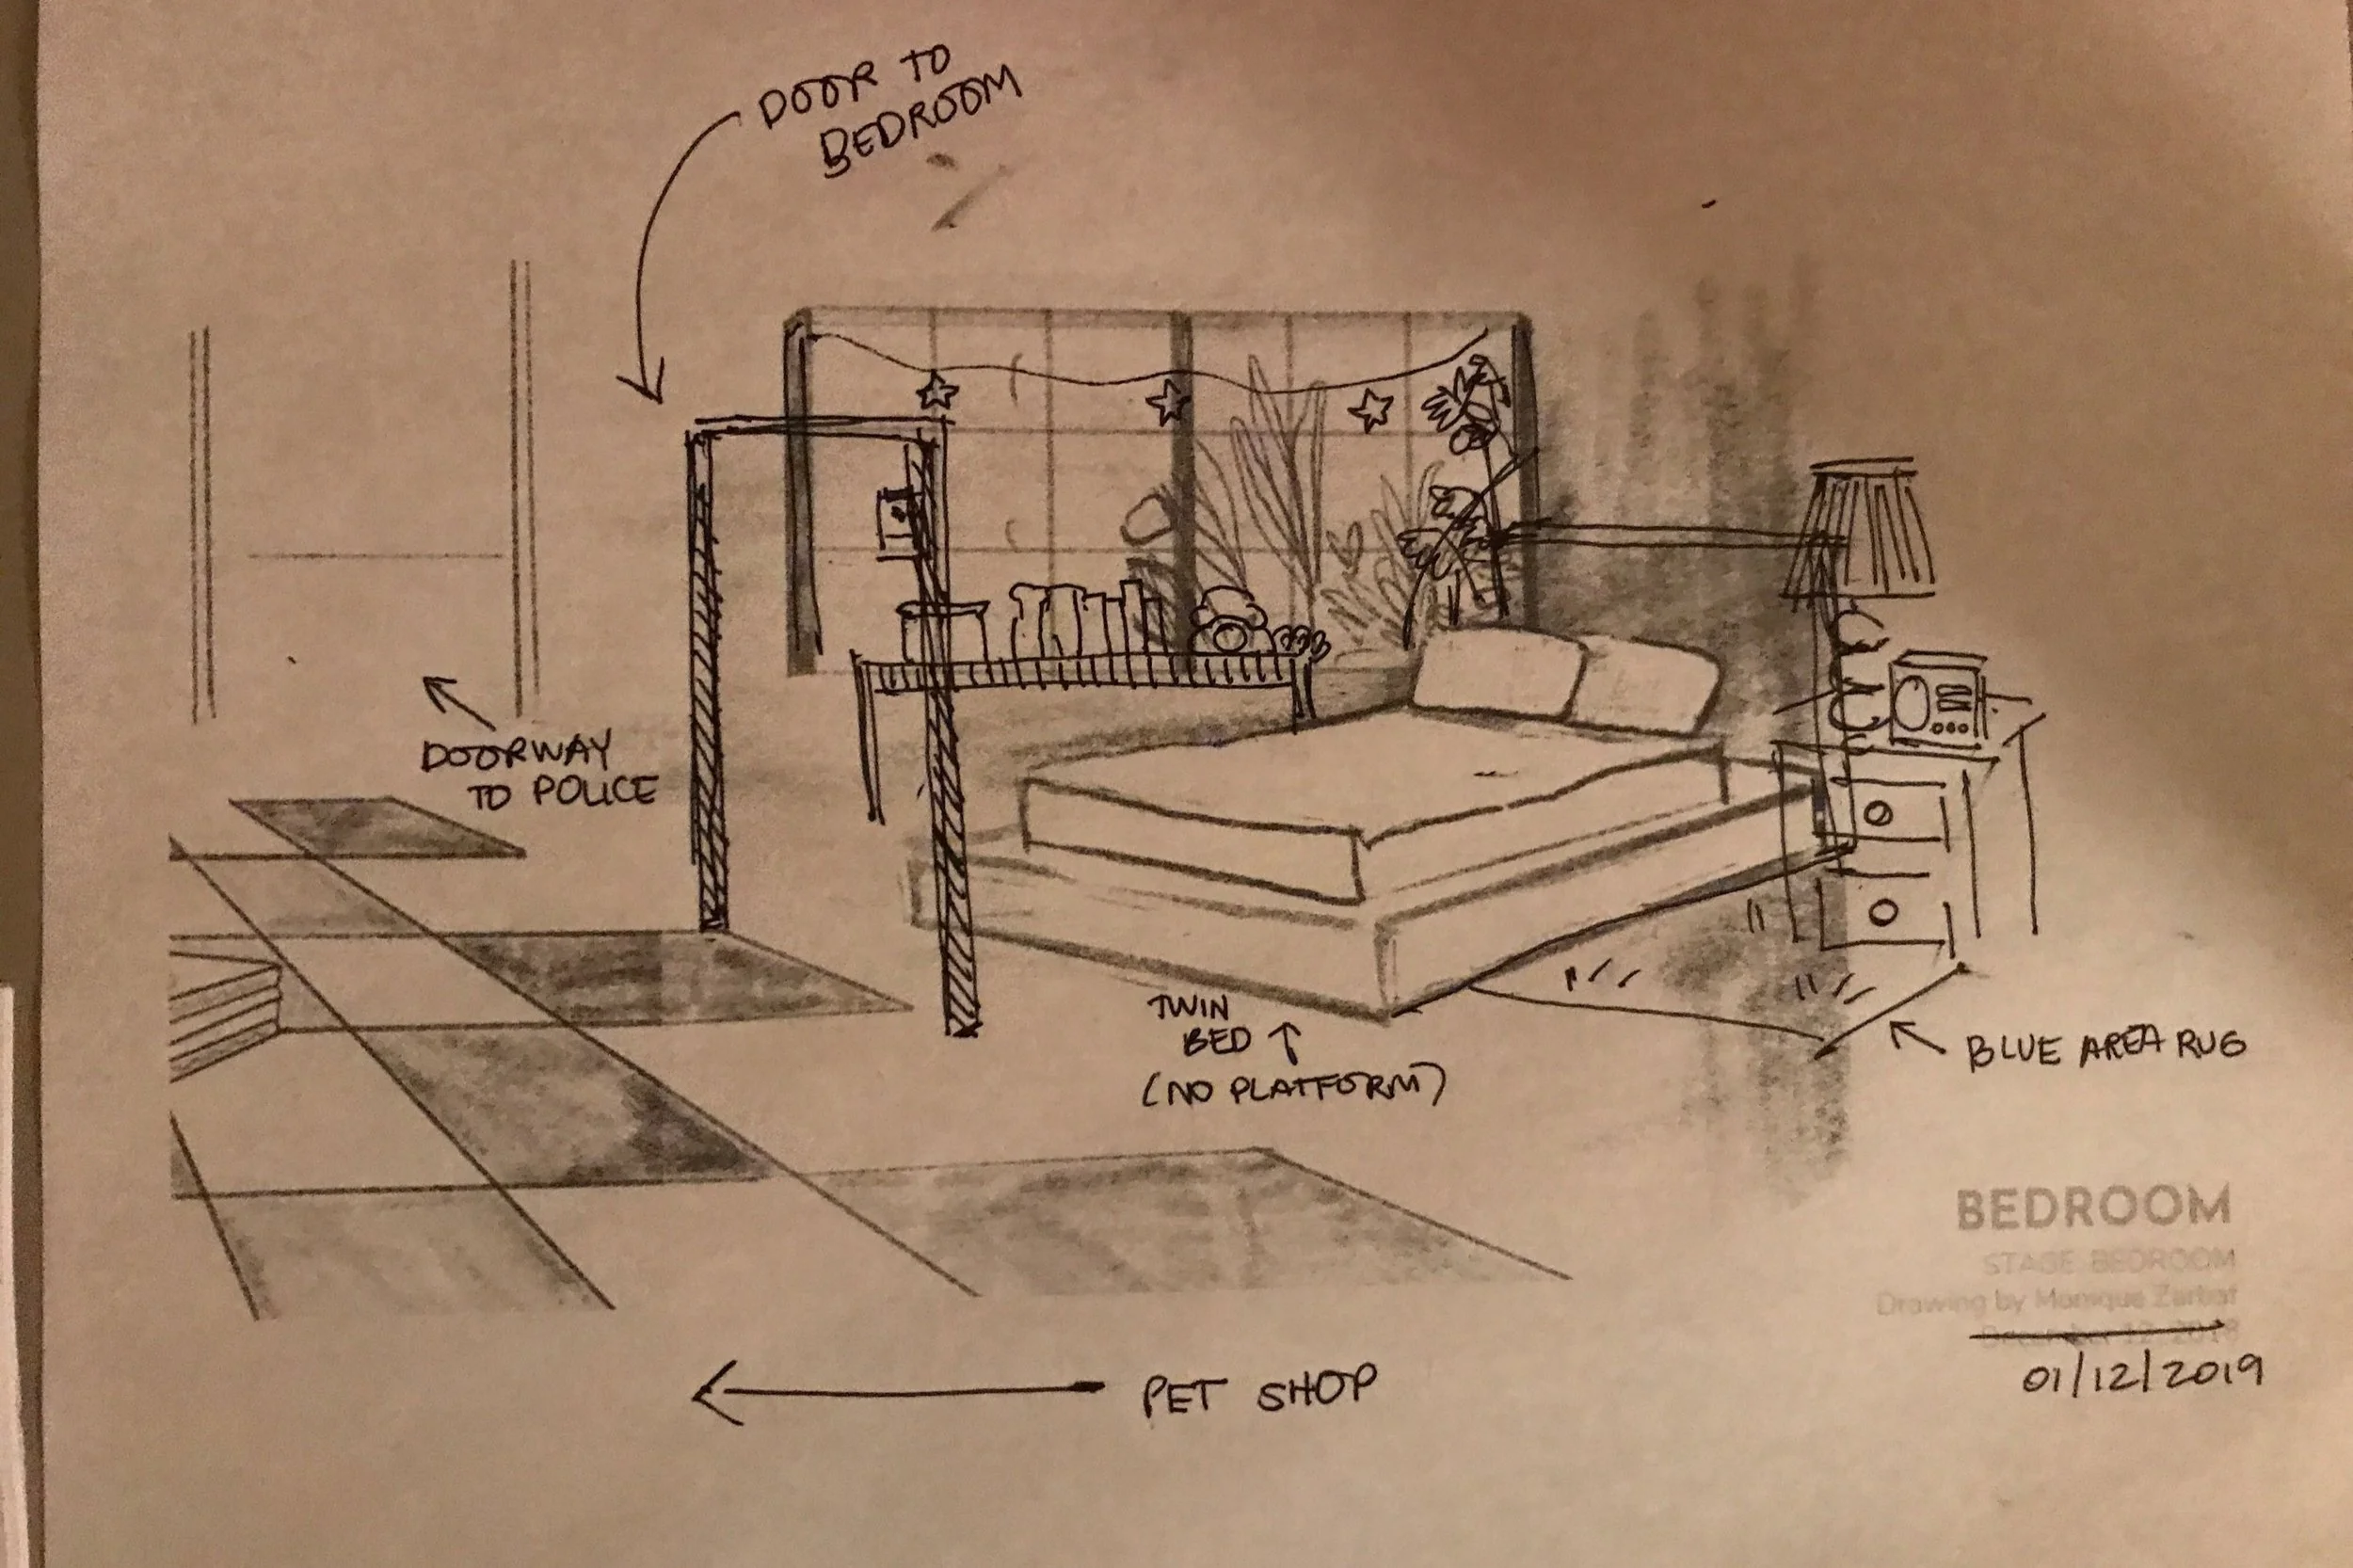 DOOR TO
BEDROOM
DOORWAY
TO POLICE
TWIN
BED
(NO PLATFORM)
BLUE AREA RUG
BEDROOM
STAGE BEDROOM
Drawing by Monique
01/12/2019
PET SHOP